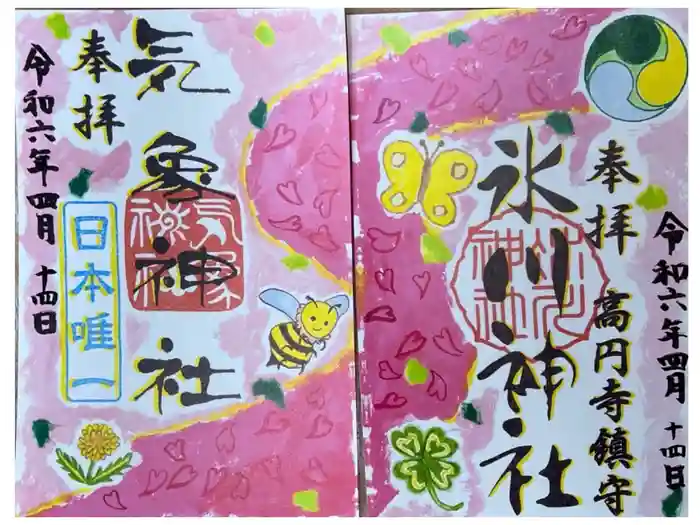 氷川神社
奉拝
高円寺鎮守
令和六年四月 十四日
氷川神社
気象神社
奉拝
令和六年四月 十四日
日本唯一
気象神社